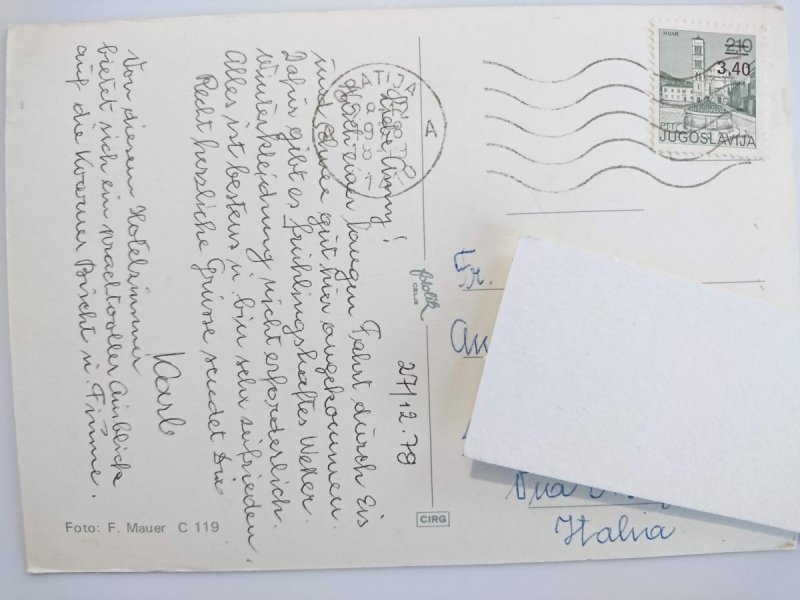 27/12.78
Liebe Anny!
Nach einer langen Fahrt durch Eis
und Schnee gut hier angekommen.
Dafür gibt es frühlingshaftes Wetter.
Winterkleidung nicht erforderlich.
Alles ist bestens u. bin sehr zufrieden.
Recht herzliche Grüsse sendet Dir
Karl
Von diesem Hotelzimmer
bietet sich ein prachtvoller Ausblick
auf die Kvarner Bucht u. Fiume.
Foto: F. Mauer C 119
CIRG
HVAR
2.10
3,40
JUGOSLAVIJA
Fr.
Italia